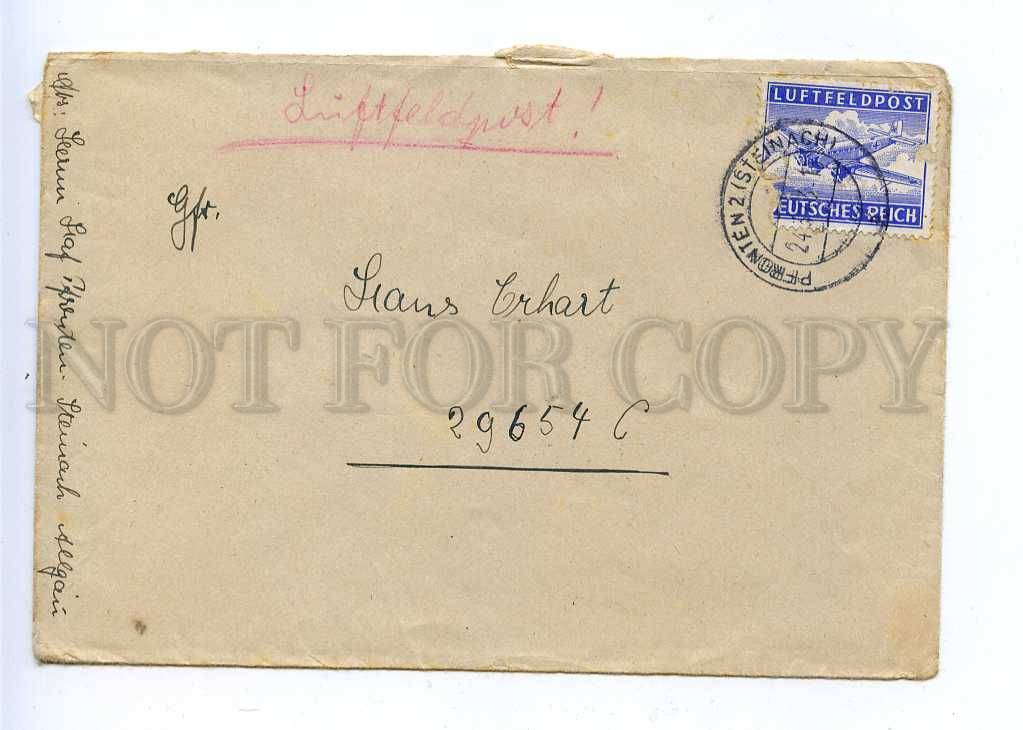 Luftfeldpost!
LUFTFELDPOST
DEUTSCHES REICH
PFRONTEN 2 (STEINACH)
24
Gfr.
Hans Erhart
29654 C
Abs: Pfronten-Steinach Allgäu
NOT FOR COPY